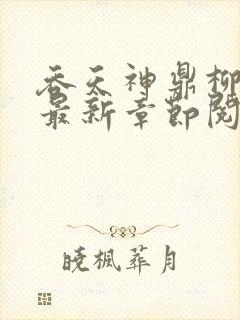 吞天神鼎柳
最新章节阅
晓枫葬月